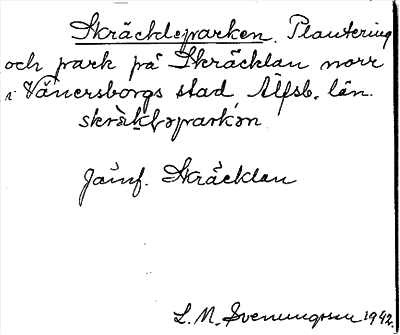 Skräckleparken. Plantering
och park på Skräcklan norr
i Vänersborgs stad Älfsb. län.
skrä̀kləparkən
Jämf. Skräcklan
L. M. Svenungsson 1942.